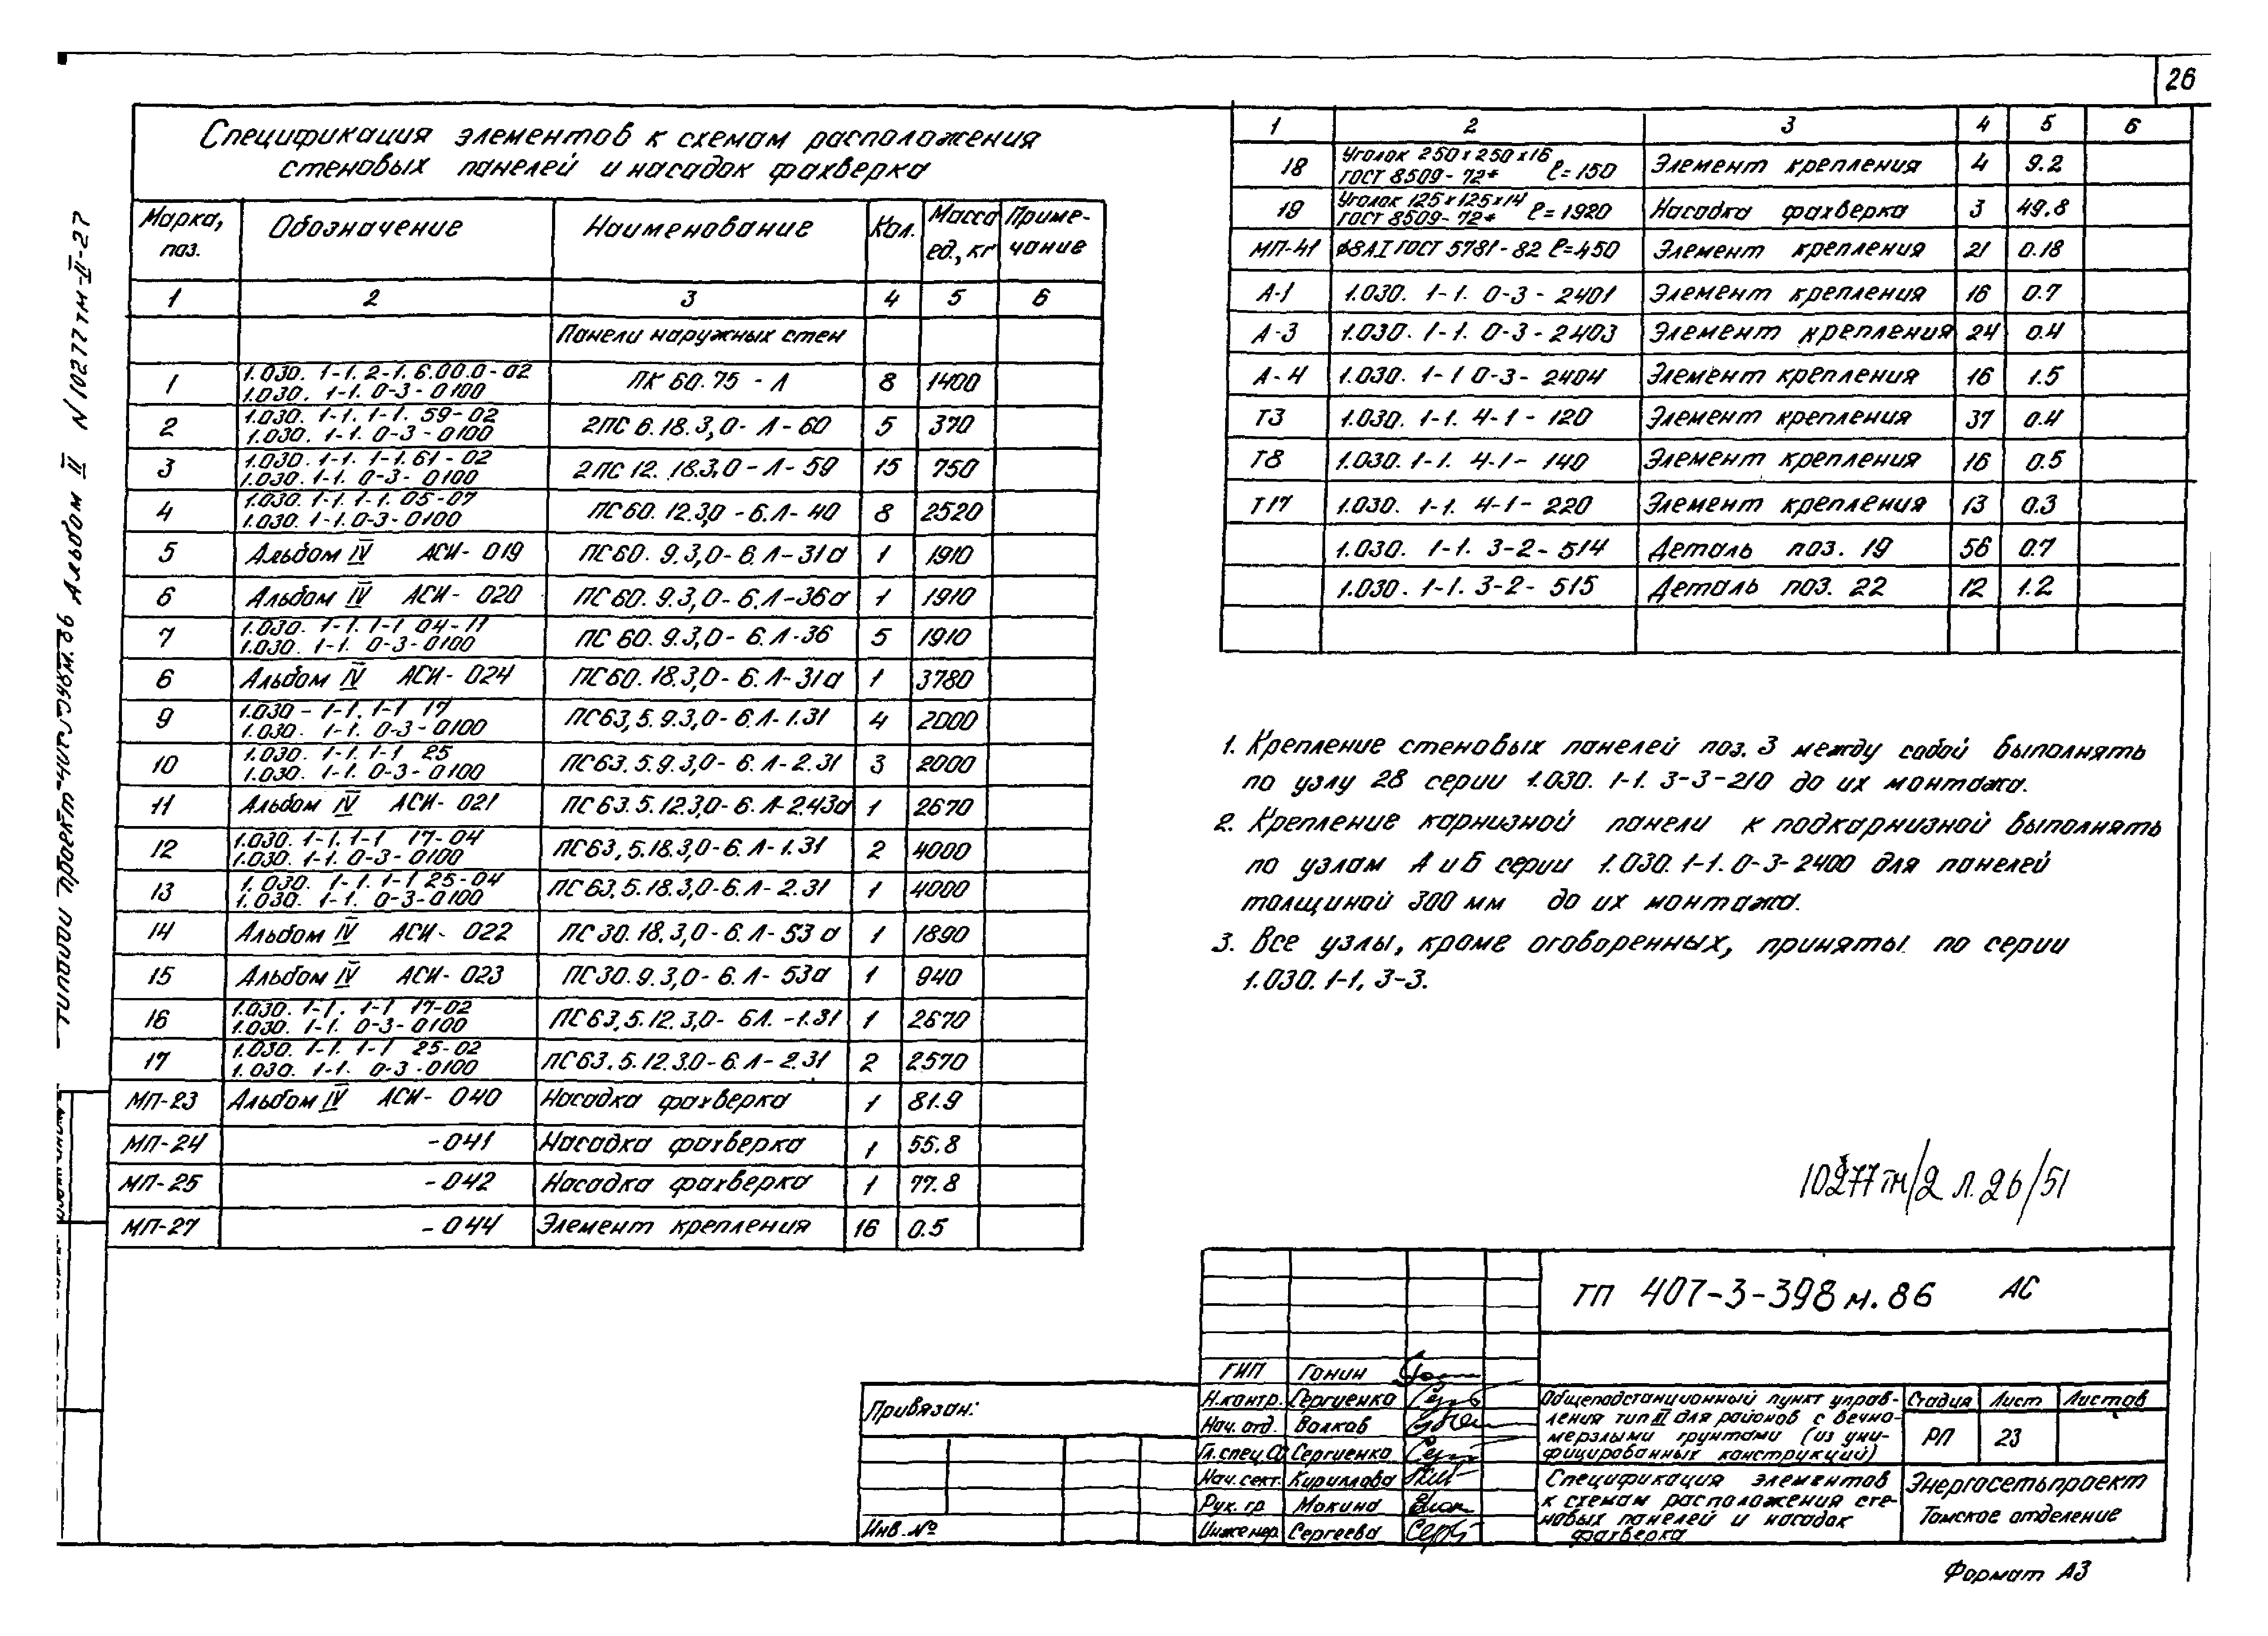 26
Типовой проект 407-3-398м.86 Альбом II N10277тм-II-27
Спецификация элементов к схемам расположения
стеновых панелей и насадок фахверка
Марка, поз. Обозначение Наименование Кол. Масса ед., кг Примечание
1 2 3 4 5 6
Панели наружных стен
1 1.030. 1-1. 2-1. 6.00.0-02 1.030. 1-1. 0-3-0100 ПК 60.75-Л 8 1400
2 1.030. 1-1. 1-1. 59-02 1.030. 1-1. 0-3-0100 2ПС 6.18.3,0-Л-60 5 370
3 1.030. 1-1. 1-1. 61-02 1.030. 1-1. 0-3-0100 2ПС 12.18.3,0-Л-59 15 750
4 1.030. 1-1. 1-1. 05-07 1.030. 1-1. 0-3-0100 ПС60.12.3,0-6.Л-40 8 2520
5 Альбом IV АСИ-019 ПС60.9.3,0-6.Л-31а 1 1910
6 Альбом IV АСИ-020 ПС60.9.3,0-6.Л-36а 1 1910
7 1.030. 1-1. 1-1 04-11 1.030. 1-1. 0-3-0100 ПС 60.9.3,0-6.Л-36 5 1910
6 Альбом IV АСИ-024 ПС60.18.3,0-6.Л-31а 1 3780
9 1.030-1-1. 1-1 17 1.030. 1-1. 0-3-0100 ПС63,5.9.3,0-6.Л-1.31 4 2000
10 1.030. 1-1. 1-1 25 1.030. 1-1. 0-3-0100 ПС63.5.9.3,0-6.Л-2.31 3 2000
11 Альбом IV АСИ-021 ПС63.5.12.3,0-6.Л-2.43а 1 2670
12 1.030. 1-1. 1-1 17-04 1.030. 1-1. 0-3-0100 ПС63,5.18.3,0-6.Л-1.31 2 4000
13 1.030. 1-1. 1-1 25-04 1.030. 1-1. 0-3-0100 ПС63,5.18.3,0-6.Л-2.31 1 4000
14 Альбом IV АСИ-022 ПС30.18.3,0-6.Л-53а 1 1890
15 Альбом IV АСИ-023 ПС30.9.3,0-6.Л-53а 1 940
16 1.030. 1-1. 1-1 17-02 1.030. 1-1. 0-3-0100 ПС63,5.12.3,0-6Л.-1.31 1 2670
17 1.030. 1-1. 1-1 25-02 1.030. 1-1. 0-3-0100 ПС63.5.12.3.0-6.Л-2.31 2 2570
МП-23 Альбом IV АСИ-040 Насадка фахверка 1 81.9
МП-24 -041 Насадка фахверка 1 55.8
МП-25 -042 Насадка фахверка 1 77.8
МП-27 -044 Элемент крепления 16 0.5
1 2 3 4 5 6
18 Уголок 250x250x16 ГОСТ 8509-72* ℓ=150 Элемент крепления 4 9.2
19 Уголок 125x125x14 ГОСТ 8509-72* ℓ=1920 Насадка фахверка 3 49.8
МП-41 ϕ8АI ГОСТ 5781-82 ℓ=450 Элемент крепления 21 0.18
А-1 1.030. 1-1. 0-3-2401 Элемент крепления 16 0.7
А-3 1.030. 1-1. 0-3-2403 Элемент крепления 24 0.4
А-4 1.030. 1-1 0-3-2404 Элемент крепления 16 1.5
Т3 1.030. 1-1. 4-1-120 Элемент крепления 37 0.4
Т8 1.030. 1-1. 4-1-140 Элемент крепления 16 0.5
Т17 1.030. 1-1. 4-1-220 Элемент крепления 13 0.3
1.030. 1-1. 3-2-514 Деталь поз. 19 56 0.7
1.030. 1-1. 3-2-515 Деталь поз. 22 12 1.2
1. Крепление стеновых панелей поз. 3 между собой выполнять
по узлу 28 серии 1.030. 1-1. 3-3-210 до их монтажа.
2. Крепление карнизной панели к подкарнизной выполнять
по узлам А и Б серии 1.030. 1-1. 0-3-2400 для панелей
толщиной 300 мм до их монтажа.
3. Все узлы, кроме оговоренных, приняты по серии
1.030. 1-1. 3-3.
10277тм/2 л.26/51
ТП 407-3-398м.86 АС
Привязан:
Инв. №
ГИП Гонин
Н.контр. Сергиенко
Нач. отд. Волков
Гл.спец. Сергиенко
Нач. сект. Кириллова
Рук. гр. Мокина
Инженер Сергеева
Общеподстанционный пункт управ-
ления тип III для районов с вечно-
мерзлыми грунтами (из уни-
фицированных конструкций)
Стадия Лист Листов
РП 23
Спецификация элементов
к схемам расположения сте-
новых панелей и насадок
фахверка
Энергосетьпроект
Томское отделение
Формат А3